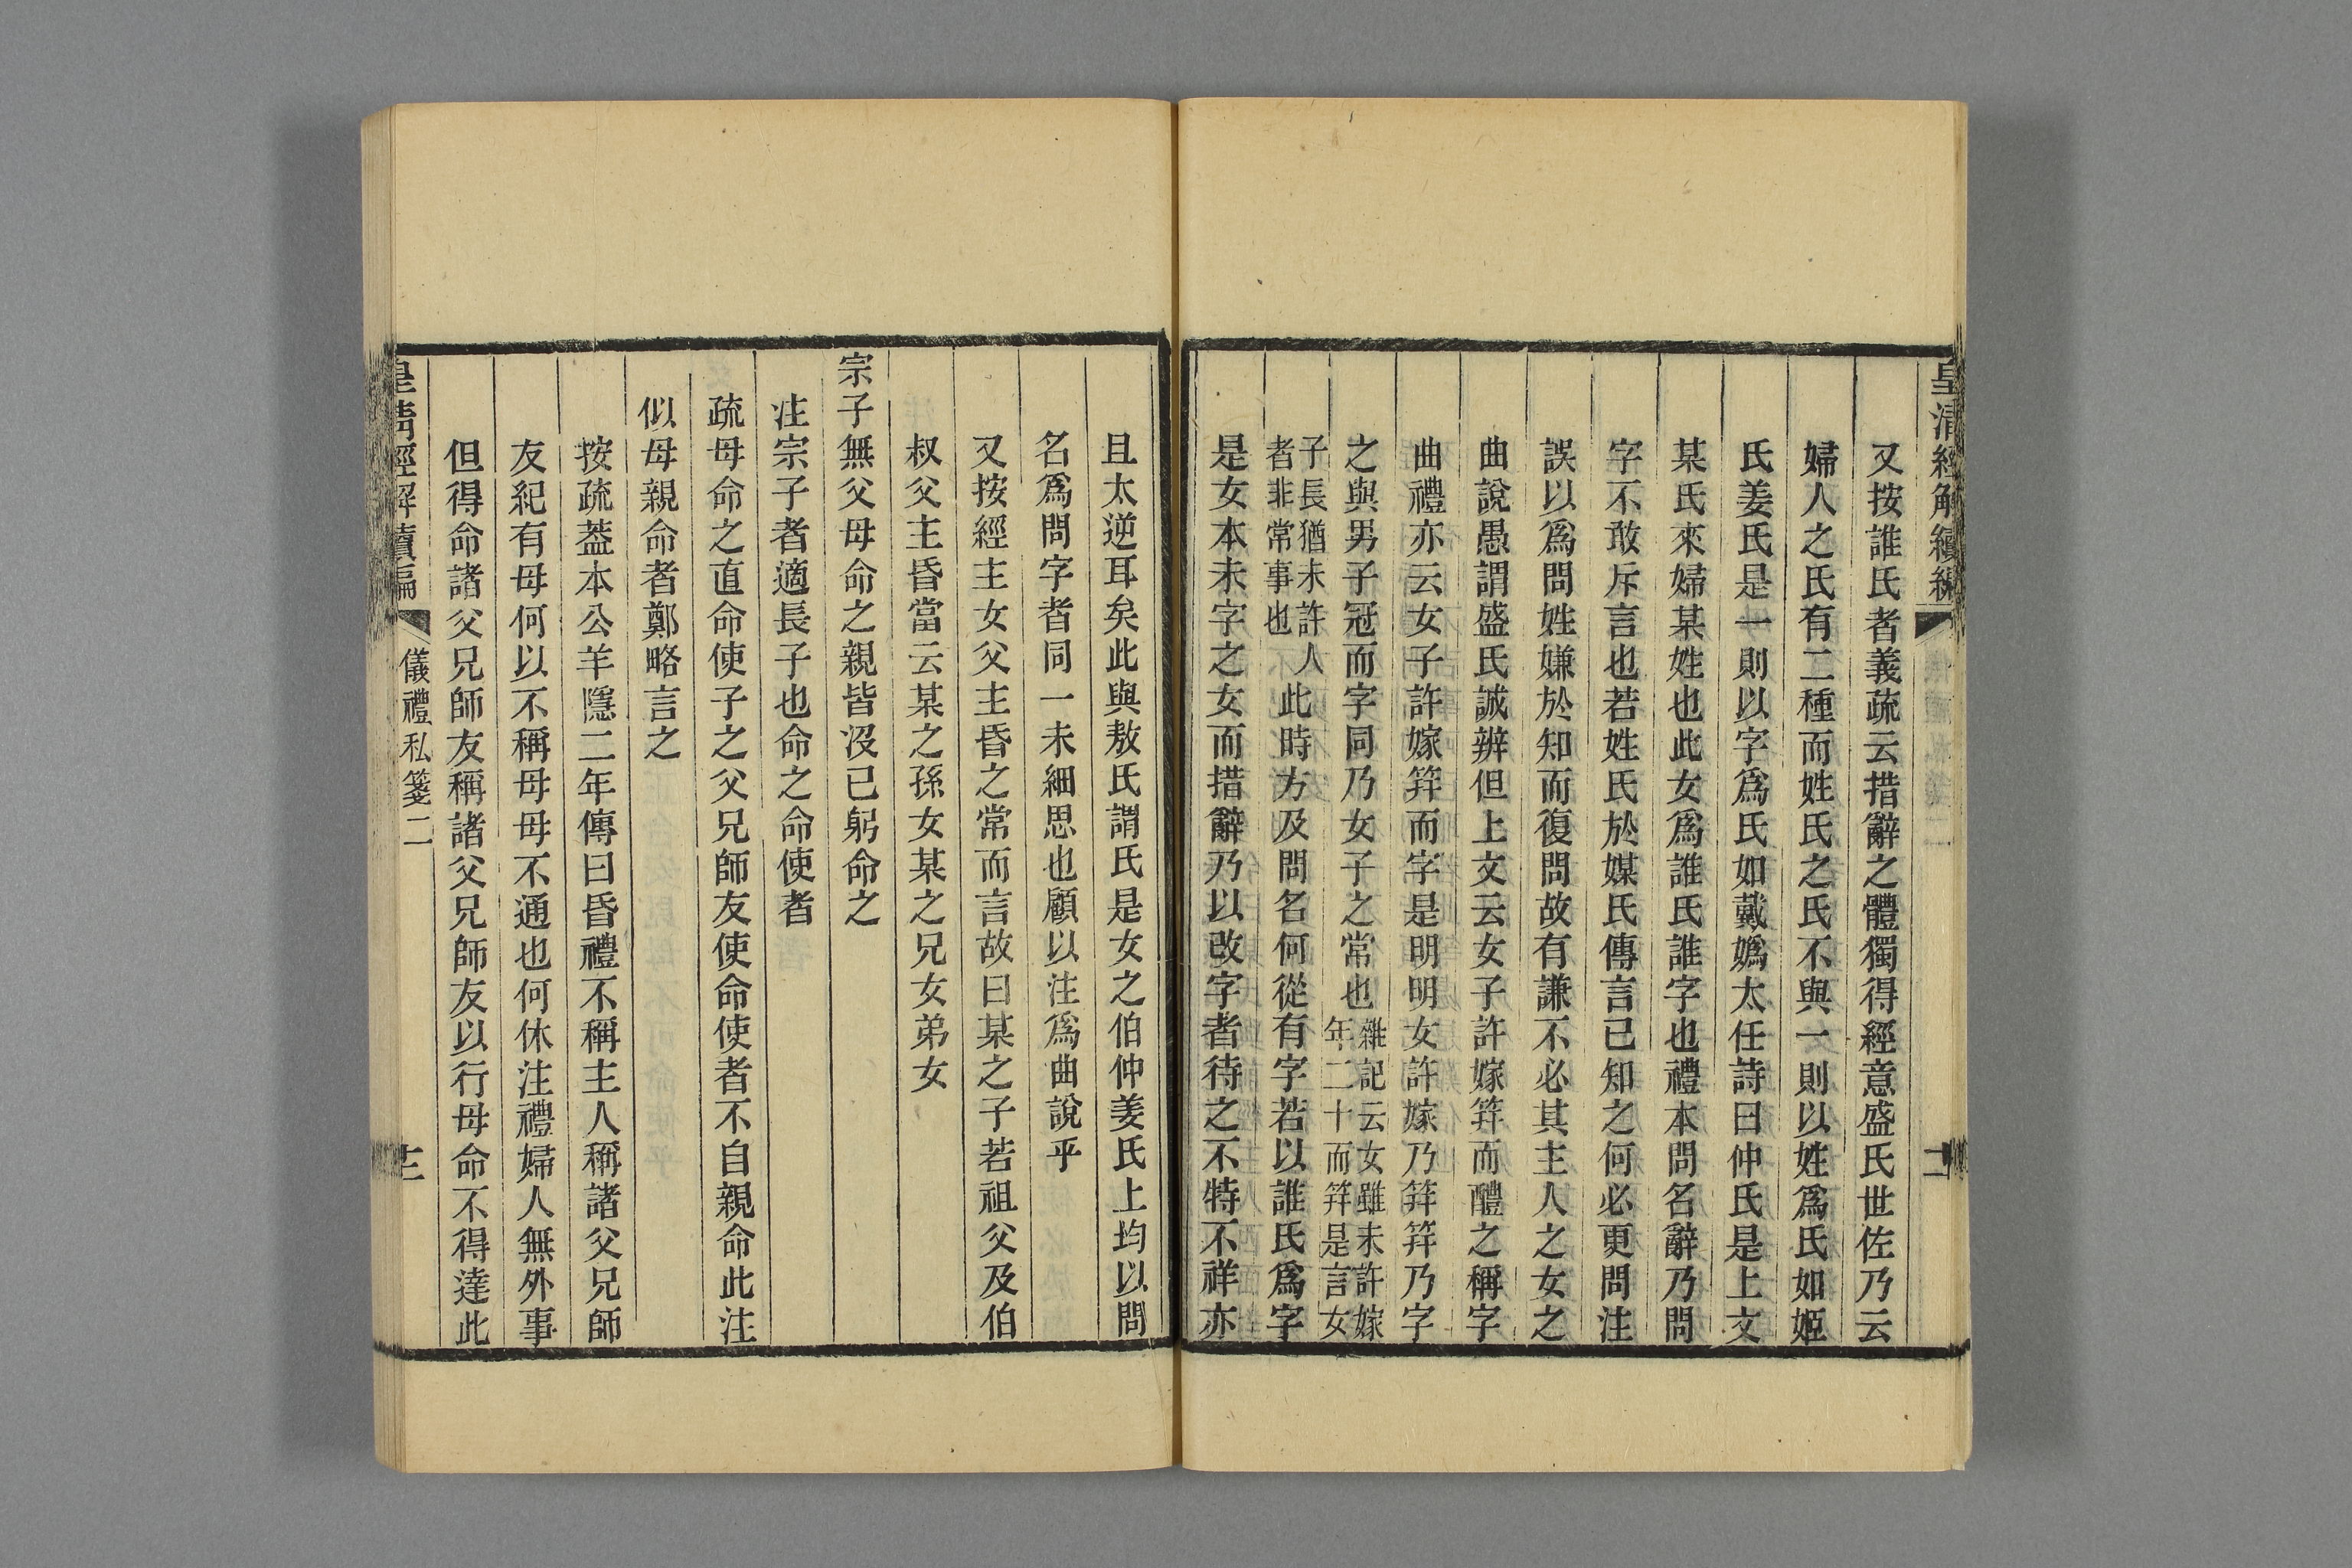 皇清經解續編
又按誰氏者義疏云措辭之體獨得經意盛氏世佐乃云
婦人之氏有二種而姓氏之氏不與一則以姓爲氏如姬
氏姜氏是一則以字爲氏如戴嬀太任詩曰仲氏是上文
某氏來婦某姓也此女爲誰氏誰字也禮本問名辭乃問
字不敢斥言也若姓氏於媒氏傳言已知之何必更問注
誤以爲問姓嫌於知而復問故有謙不必其主人之女之
曲說愚謂盛氏誠辨但上文云女子許嫁笄而醴之稱字
曲禮亦云女子許嫁笄而字是明明女許嫁乃笄笄乃字
之與男子冠而字同乃女子之常也雜記云女雖未許嫁年二十而笄是言女
子長猶未許人者非常事也此時方及問名何從有字若以誰氏爲字
是女本未字之女而措辭乃以改字者待之不特不祥亦
且太逆耳矣此與敖氏謂氏是女之伯仲姜氏上均以問
名爲問字者同一未細思也顧以注爲曲說乎
又按經主女父主昏之常而言故曰某之子若祖父及伯
叔父主昏當云某之孫女某之兄女弟女
宗子無父母命之親皆沒已躬命之
注宗子者適長子也命之命使者
疏母命之直命使子之父兄師友使命使者不自親命此注
似母親命者鄭略言之
按疏葢本公羊隱二年傳曰昏禮不稱主人稱諸父兄師
友紀有母何以不稱母母不通也何休注禮婦人無外事
但得命諸父兄師友稱諸父兄師友以行母命不得達此
皇清經解續編
儀禮私箋二